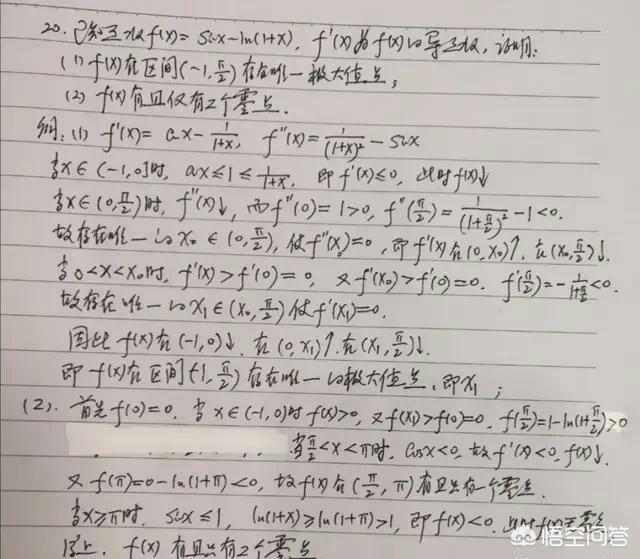 20. 已知函数f(x)= sinx-ln(1+x), f'(x)为f(x)的导函数, 证明:
(1) f(x)在区间(-1,π/2)存在唯一极大值点;
(2) f(x)有且仅有2个零点.
解: (1) f'(x)= cosx- 1/(1+x), f''(x)= 1/(1+x)² - sinx
当x∈(-1,0]时, cosx≤1≤ 1/(1+x), 即f'(x)≤0, 此时f(x)↓
当x∈(0,π/2)时, f''(x)↓, 而f''(0)=1>0, f''(π/2)= 1/(1+π/2)² -1<0.
故存在唯一的x₀∈(0,π/2), 使f''(x₀)=0, 即f'(x)在(0,x₀)↑, 在(x₀,π/2)↓.
当0<x<x₀时, f'(x)>f'(0)=0, 又f'(x₀)>f'(0)=0. f'(π/2)=- 1/(1+π/2) <0.
故存在唯一的x₁∈(x₀,π/2)使f'(x₁)=0.
因此 f(x)在(-1,0)↓, 在(0,x₁)↑. 在(x₁,π/2)↓.
即f(x)在区间(-1,π/2)存在唯一的极大值点, 即x₁;
(2). 首先f(0)=0. 当x∈(-1,0)时f(x)>0, 又f(x₁)>f(0)=0, f(π/2)=1-ln(1+π/2)>0
当π/2<x<π时, cosx<0, 故f'(x)<0, f(x)↓.
又f(π)=0-ln(1+π)<0, 故f(x)在(π/2,π)有且只有一个零点.
当x≥π时, sinx≤1, ln(1+x)≥ln(1+π)>1, 即f(x)<0, 此时f(x)无零点
综上, f(x)有且只有2个零点
悟空问答